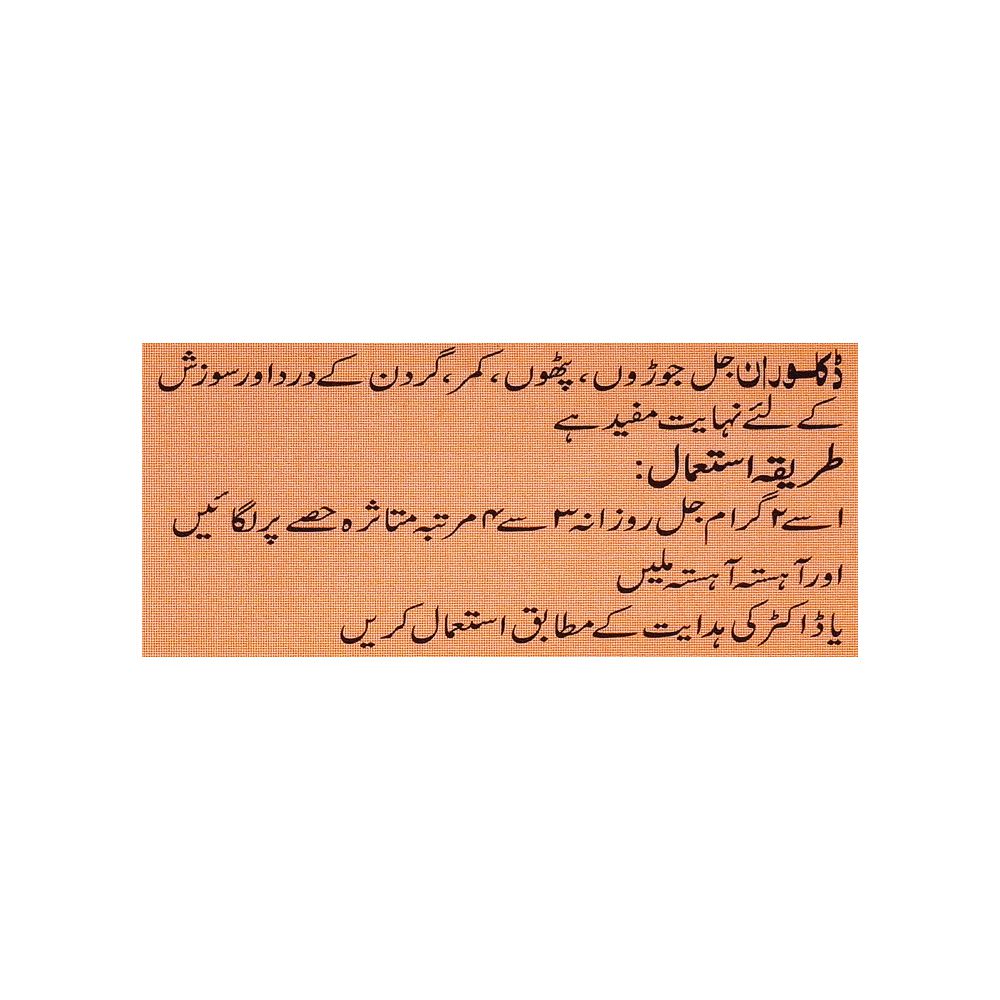 ڈکلوران جل جوڑوں، پٹھوں، کمر، گردن کے درد اور سوزش
کے لئے نہایت مفید ہے
طریقہ استعمال:
اسے ۲ گرام جل روزانہ ۳ سے ۴ مرتبہ متاثرہ حصے پر لگائیں
اور آہستہ آہستہ ملیں
یا ڈاکٹر کی ہدایت کے مطابق استعمال کریں